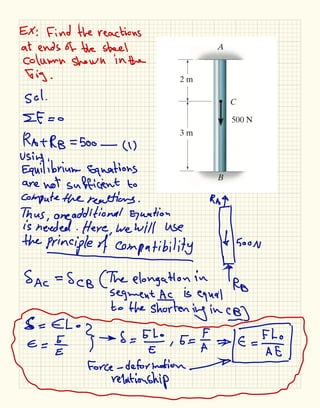 Ex: Find the reactions
at ends of the steel
column shown in the
Fig.
A
2 m
C
500 N
3 m
B
Sol.
ΣF = 0
RA + RB = 500 — (1)
Using
Equilibrium Equations
are not sufficient to
compute the reactions.
Thus, one additional Equation
is needed. Here, we will use
the principle of compatibility
RA
500N
RB
δAC = δCB (The elongation in
segment AC is equal
to the shortening in CB)
δ = ϵL₀
ϵ = σ/E
→ δ = σL₀/E , σ = F/A ⇒ ϵ = FL₀/AE
Force-deformation
relationship